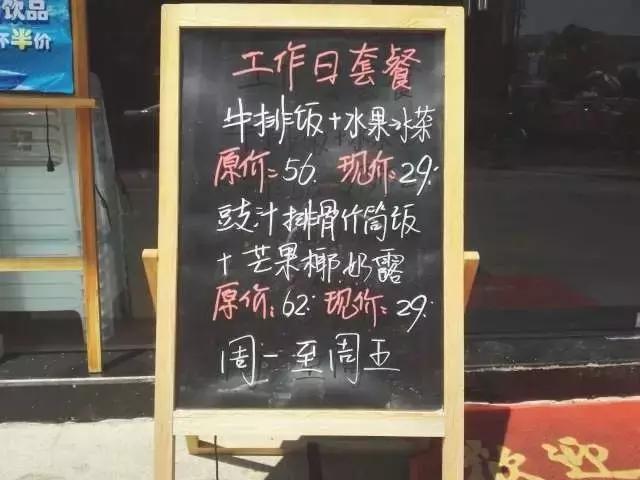 饮品
半价
工作日套餐
牛排饭+水果冰茶
原价:56. 现价:29.
豉汁排骨竹筒饭
+芒果椰奶露
原价:62. 现价:29.
周一至周五
欢迎